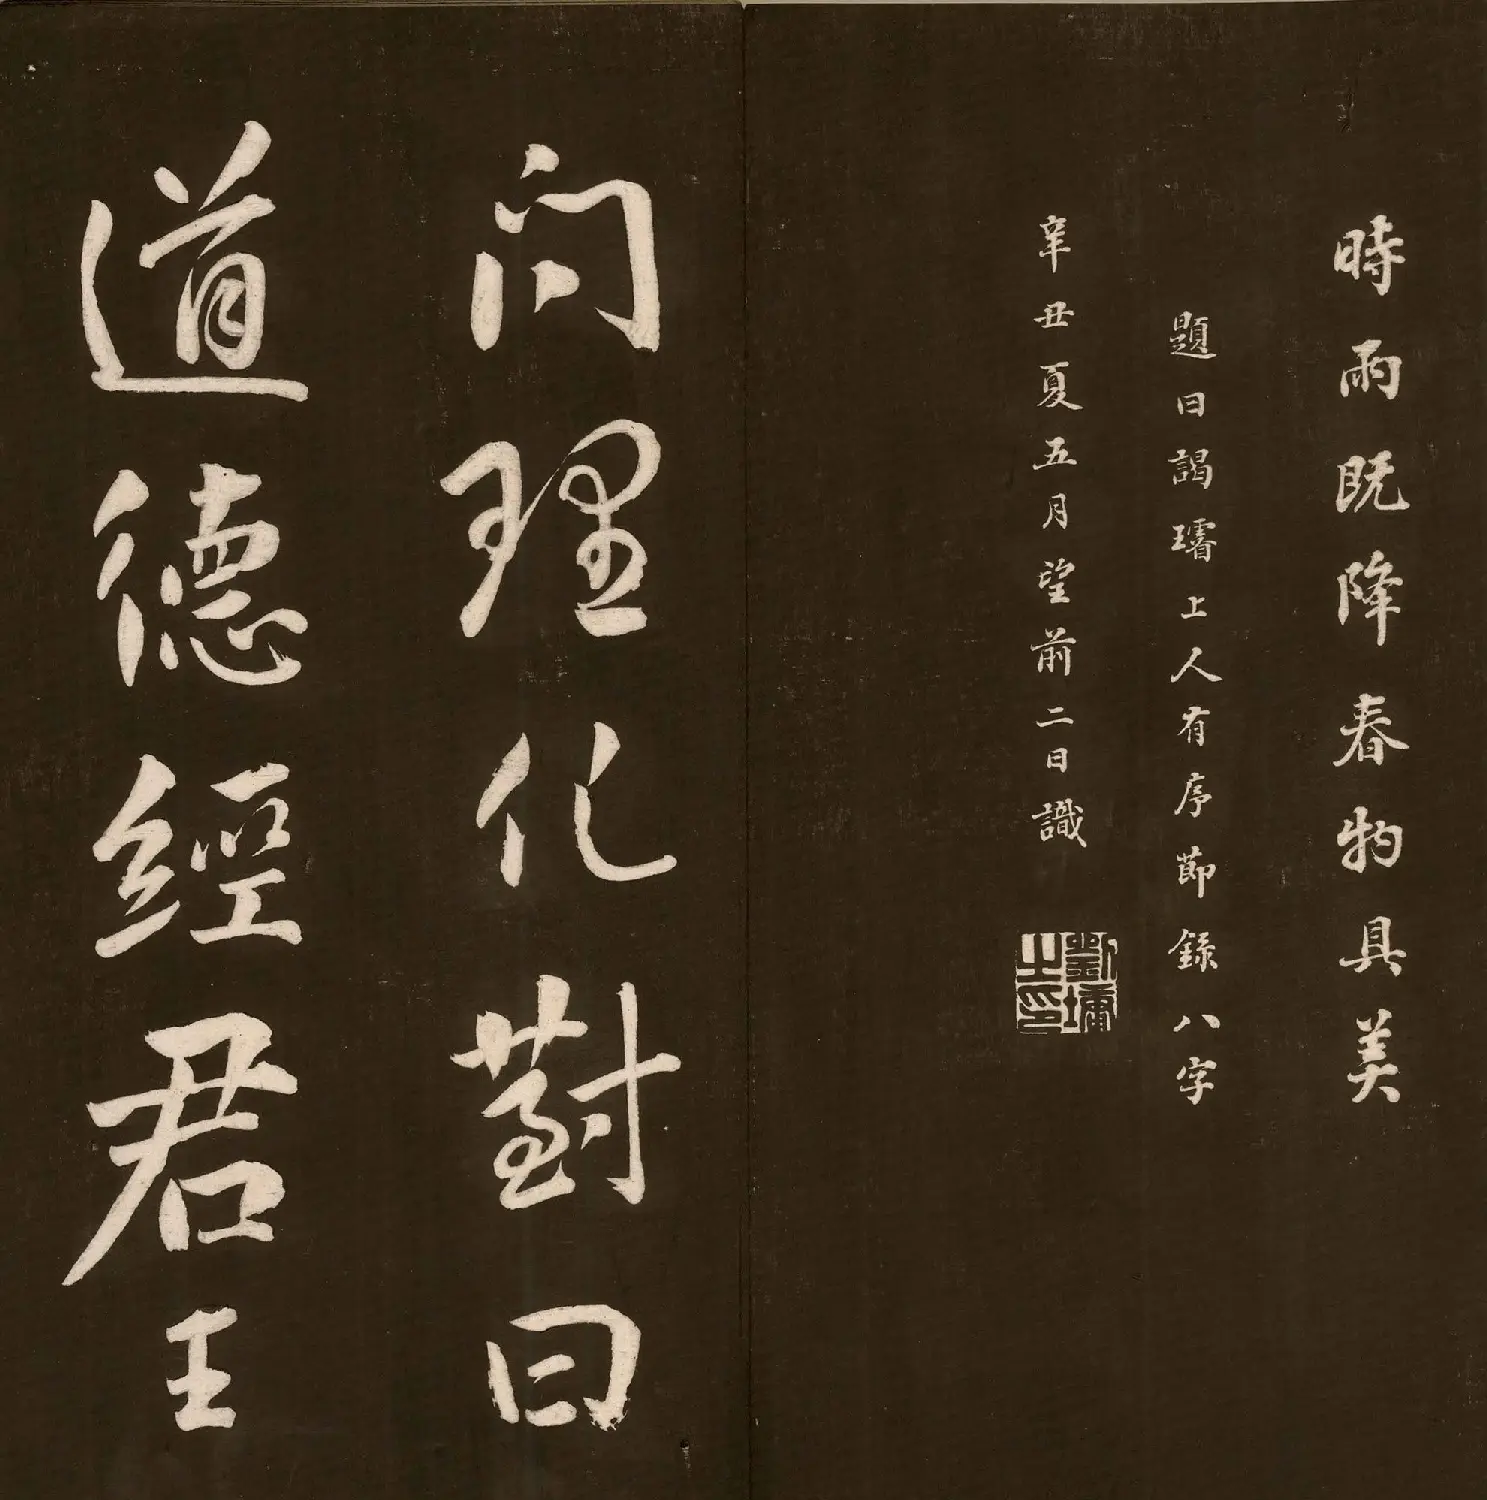 時雨既降春物具美
題曰謁璿上人有序節錄八字
辛丑夏五月望前二日識
劉墉之印
问理化對曰
道德經君王